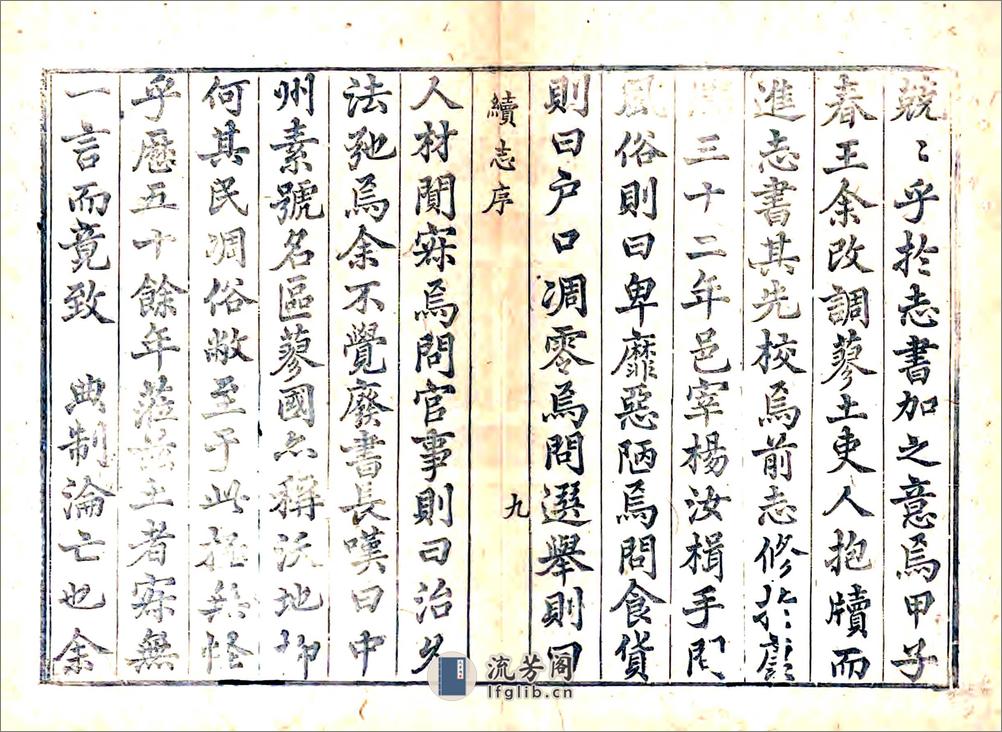 兢〻乎於志書加之意焉甲子
春王余改調蓼土吏人抱牘而
進志書其先校焉前志修於
三十二年邑宰楊汝楫手問
風俗則曰卑靡惡陋焉問食貨
則曰户口凋零焉問選舉則曰
續志序
九
人材閴寂焉問官事則曰治乆
法弛焉余不覺廢書長嘆曰中
州素號名區蓼國亦稱沃地抑
何其民凋俗敝至于此極無怪
乎歷五十餘年蒞兹土者寂無
一言而竟致 典制淪亡也余
流芳阁
lfglib.cn